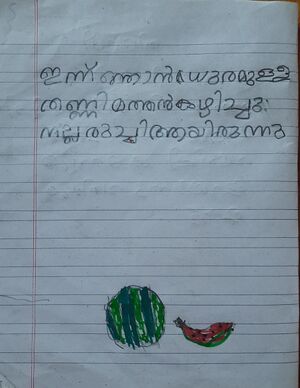 ഇന്ന് ഞാൻ മധുരമുള്ള
തണ്ണിമത്തൻ കഴിച്ചു.
നല്ല രുചിആയിരുന്നു